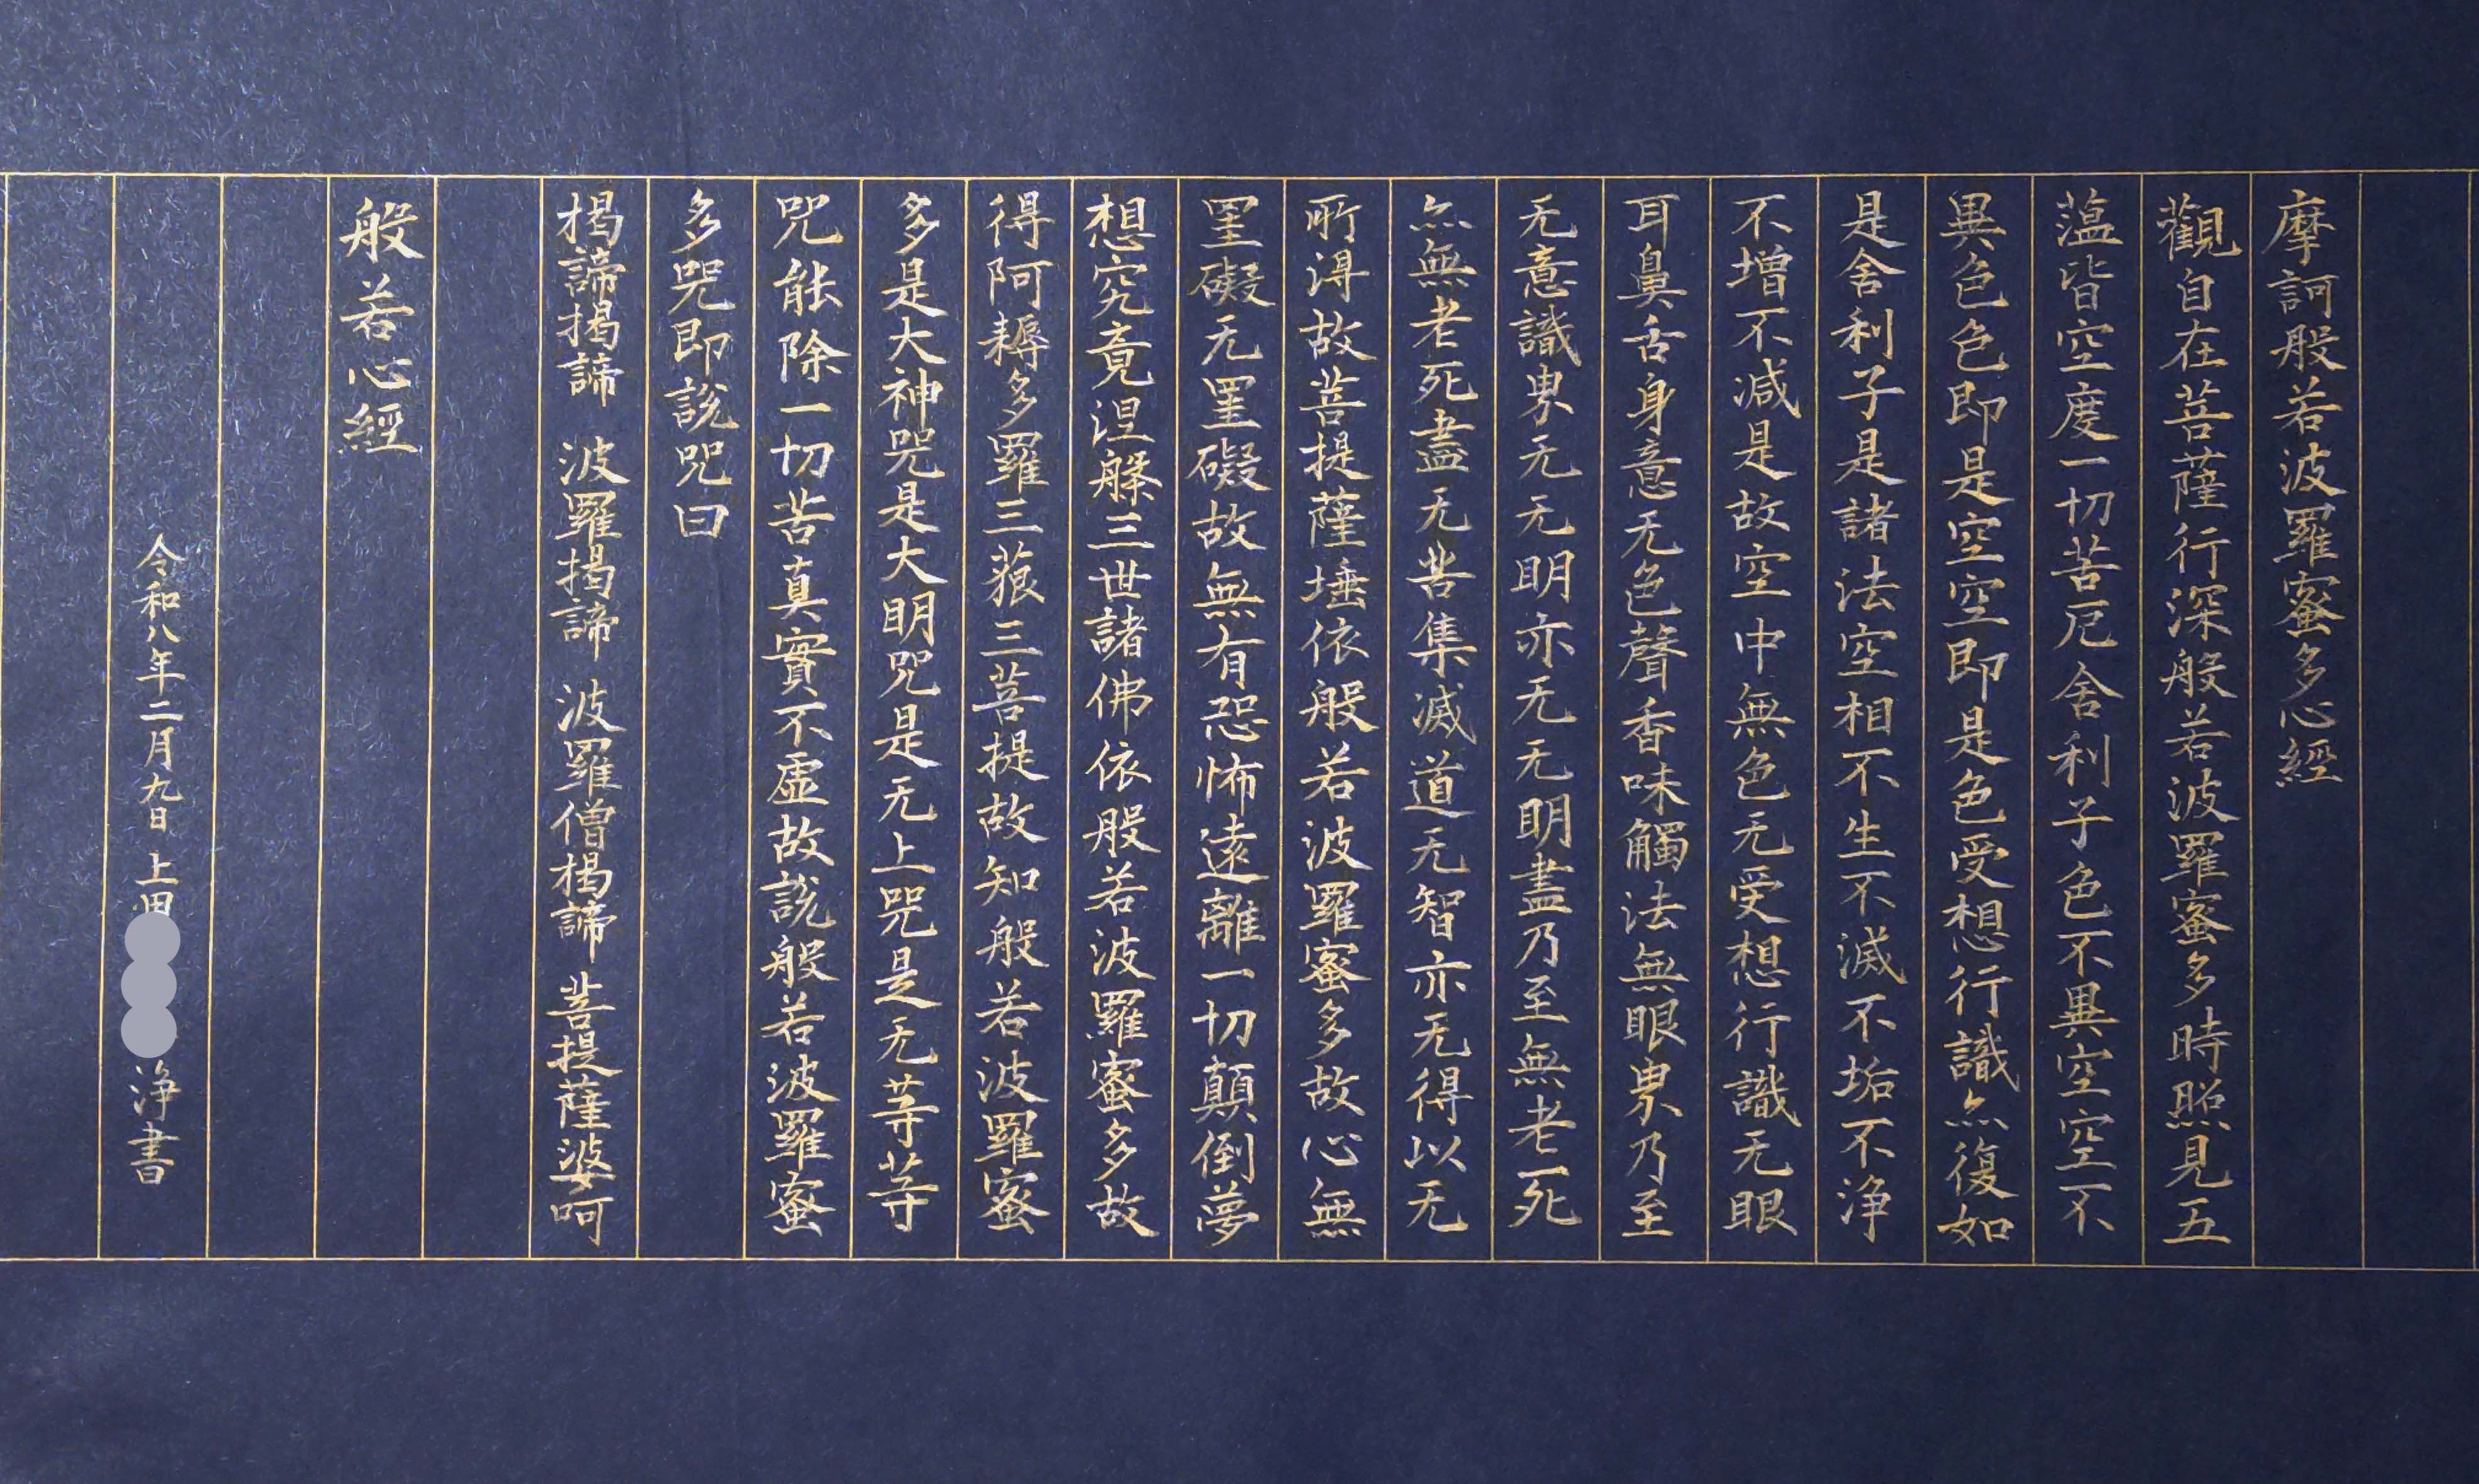 摩訶般若波羅蜜多心經
觀自在菩薩行深般若波羅蜜多時照見五
薀皆空度一切苦厄舍利子色不異空空不
異色色即是空空即是色受想行識亦復如
是舍利子是諸法空相不生不滅不垢不浄
不增不減是故空中無色无受想行識无眼
耳鼻舌身意无色聲香味觸法無眼界乃至
无意識界无无明亦无无明盡乃至無老死
亦無老死盡无苦集滅道无智亦无得以无
所得故菩提薩埵依般若波羅蜜多故心無
罣礙无罣礙故無有恐怖遠離一切顛倒夢
想究竟涅槃三世諸佛依般若波羅蜜多故
得阿耨多羅三藐三菩提故知般若波羅蜜
多是大神咒是大明咒是无上咒是无等等
咒能除一切苦真實不虛故說般若波羅蜜
多咒即說咒曰
揭諦揭諦 波羅揭諦 波羅僧揭諦 菩提薩婆呵
般若心經
令和八年二月九日 上田 浄書